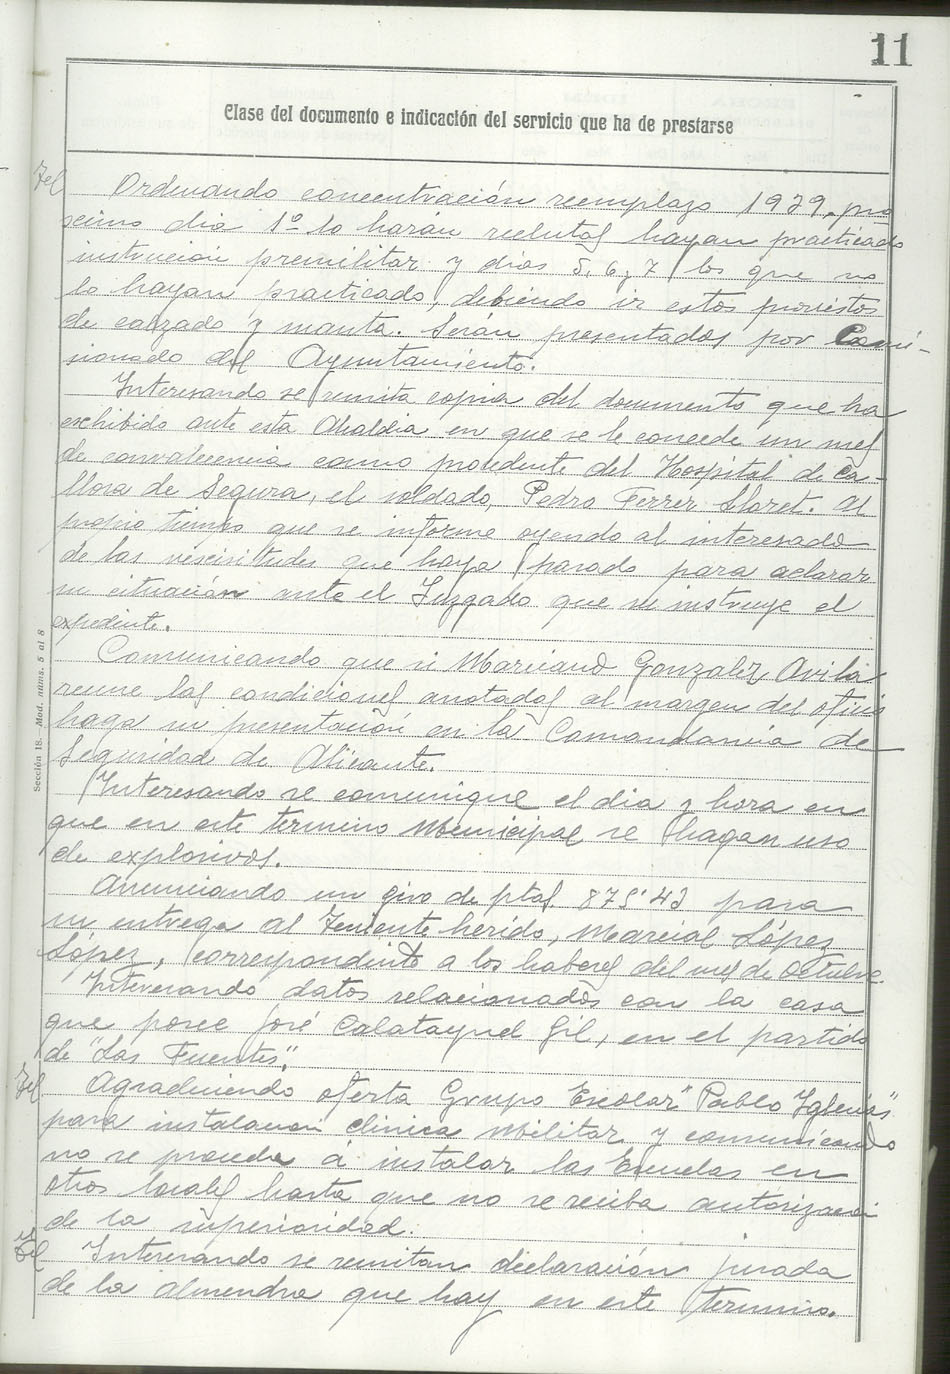 11
Clase del documento e indicación del servicio que ha de prestarse
Tel Ordenando concentración reemplazo 1929, pro
ximo dia 1º lo harán reclutas hayan practicado
instrucción premilitar y dias 5, 6 y 7 los que no
lo hayan practicado, debiendo ir estos provistos
de calzado y manta. Serán presentados por Comi-
sionado del Ayuntamiento.
Interesando se remita copia del documento que ha
exhibido ante esta Alcaldia en que se le concede un mes
de convalecencia como procedente del Hospital de Ca-
llosa de Segura, el soldado, Pedro Ferrer Lloret. Al
propio tiempo que se informe oyendo al interesado
de las viscisitudes que haya pasado para aclarar
su situación ante el Juzgado que se instruye el
expediente.
Comunicando que si Marciano Gonzalez Avila
reune las condiciones anotadas al margen del oficio
haga su presentación en la Comandancia de
Seguridad de Alicante.
Interesando se comunique el dia y hora en
que en este termino Municipal se hagan uso
de explosivos.
Anunciando un giro de ptas 875'43 para
su entrega al Teniente herido, Marcial López
López, correspondiente a los haberes del mes de Octubre.
Interesando datos relacionados con la casa
que posee José Calatayud Gil, en el partido
de "Las Fuentes".
Tel Agradeciendo oferta Grupo Escolar "Pablo Iglesias"
para instalación clinica Militar y comunicando
no se proceda á instalar las Escuelas en
otros locales hasta que no se reciba autorización
de la superioridad.
Interesando se remitan declaración jurada
de la almendra que hay en este termino.
Sección 18.—Mod. núms. 5 al 8